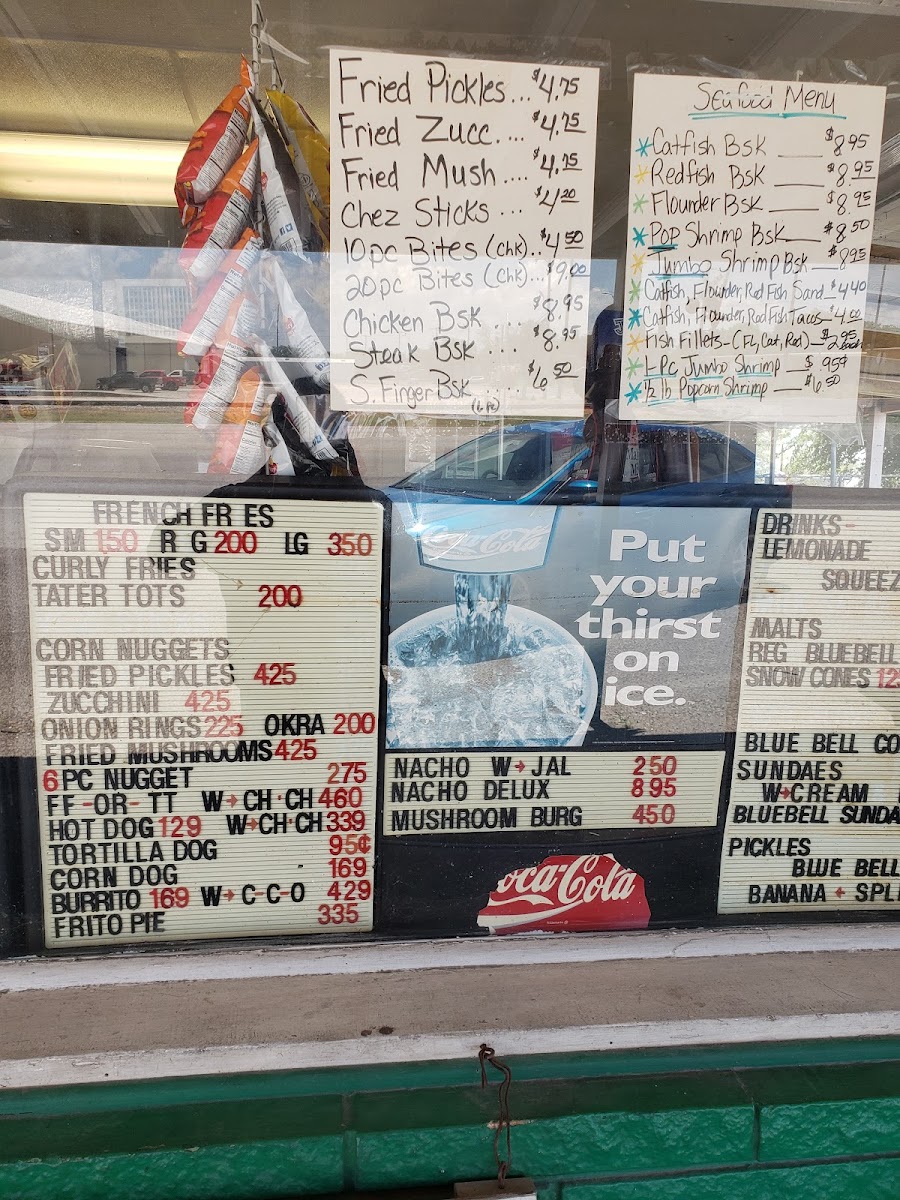 Fried Pickles... $4.75
Fried Zucc.... $4.75
Fried Mush.... $4.75
Chez Sticks ... $4.20
10pc Bites (chk).. $4.50
20pc Bites (chk)... $9.00
Chicken Bsk .... $8.95
Steak Bsk .... $8.95
S. Finger Bsk..... $6.50
Seafood Menu
*Catfish Bsk ___ $8.95
*Redfish Bsk ___ $8.95
*Flounder Bsk ___ $8.95
*Pop Shrimp Bsk ___ $8.50
*Jumbo Shrimp Bsk ___ $8.95
*Catfish, Flounder, Red Fish Sand _ $4.40
*Catfish, Flounder, Red Fish Tacos _ $4.00
*Fish Fillets-(Fl, Cat, Red) _ $2.95 each
*1-Pc Jumbo Shrimp __ $.95¢
*½ lb Popcorn Shrimp __ $6.50
FRENCH FR ES
SM 150 R G 200 LG 350
CURLY FRIES
TATER TOTS 200
CORN NUGGETS
FRIED PICKLES 425
ZUCCHINI 425
ONION RINGS 225 OKRA 200
FRIED MUSHROOMS 425
6 PC NUGGET 275
FF-OR-TT W→CH·CH 460
HOT DOG 129 W→CH·CH 339
TORTILLA DOG 95¢
CORN DOG 169
BURRITO 169 W→C-C-O 429
FRITO PIE 335
Coca-Cola
Put
your
thirst
on
ice.
NACHO W→JAL 250
NACHO DELUX 895
MUSHROOM BURG 450
oca-Cola
DRINKS-
LEMONADE
SQUEEZ
MALTS
REG BLUEBELL
SNOW CONES 12
BLUE BELL CO
SUNDAES
W→CREAM
BLUEBELL SUNDA
PICKLES
BLUE BELL
BANANA + SPLI